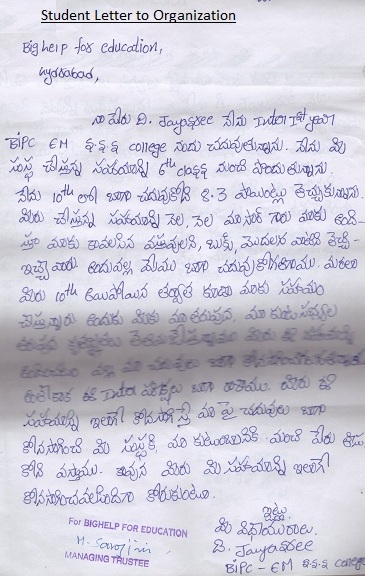 Student Letter to Organization
Big help for education,
Hyderabad,
నా పేరు D. Jayasree నేను Inter Ist year
BiPC EM college నందు చదువుతున్నాను. నేను మీ
సంస్థ చేస్తున్న సహాయాన్ని 6th class నుంచి పొందుతున్నాను.
నేను 10th లో బాగా చదువుకొని 8.3 పాయింట్లు తెచ్చుకున్నాను.
మీరు చేస్తున్న సహాయాన్ని నెల, నెల మా సార్ గారు మాకు అంది-
స్తూ మాకు కావలసిన వస్తువులని, బుక్స్, మొదలగు వాటిని తెచ్చి-
ఇచ్చేవారు అందువల్ల మేము బాగా చదువుకోగలిగాము. మరలా
మీరు 10th అయిపోయిన తర్వాత కూడా మాకు సహాయం
చేస్తున్నారు అందుకు మీకు మా తరుపున, మా కుటుంబసభ్యుల
మీరు ఈ
అంతేకాక ఈ Inter పరీక్షలు బాగా రాశాము. మీరు ఈ
సహాయాన్ని ఇలాగే కొనసాగిస్తే మా పై చదువులు బాగా
కొనసాగించి మీ సంస్థకి, మా కుటుంబానికి మంచి పేరు తీసు
కొని వస్తాము. కావున మీరు మీ సహాయాన్ని ఇలాగే
కొనసాగించవలసిందిగా కోరుకుంటూ.
ఇట్లు
మీ విధ్యార్థురాలు.
D. Jayasree
BiPC - EM college
For BIGHELP FOR EDUCATION
M. Sarojini
MANAGING TRUSTEE